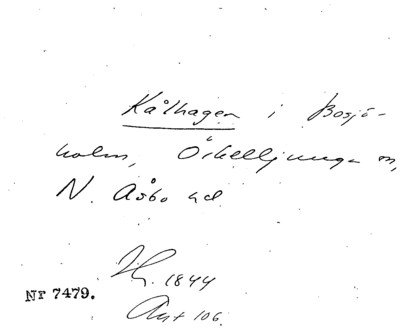 Kålhagen i Bosjö-
holm, Örkelljunga sn,
N. Åsbo hd
H. 1844
Nr 7479.
Ant 106